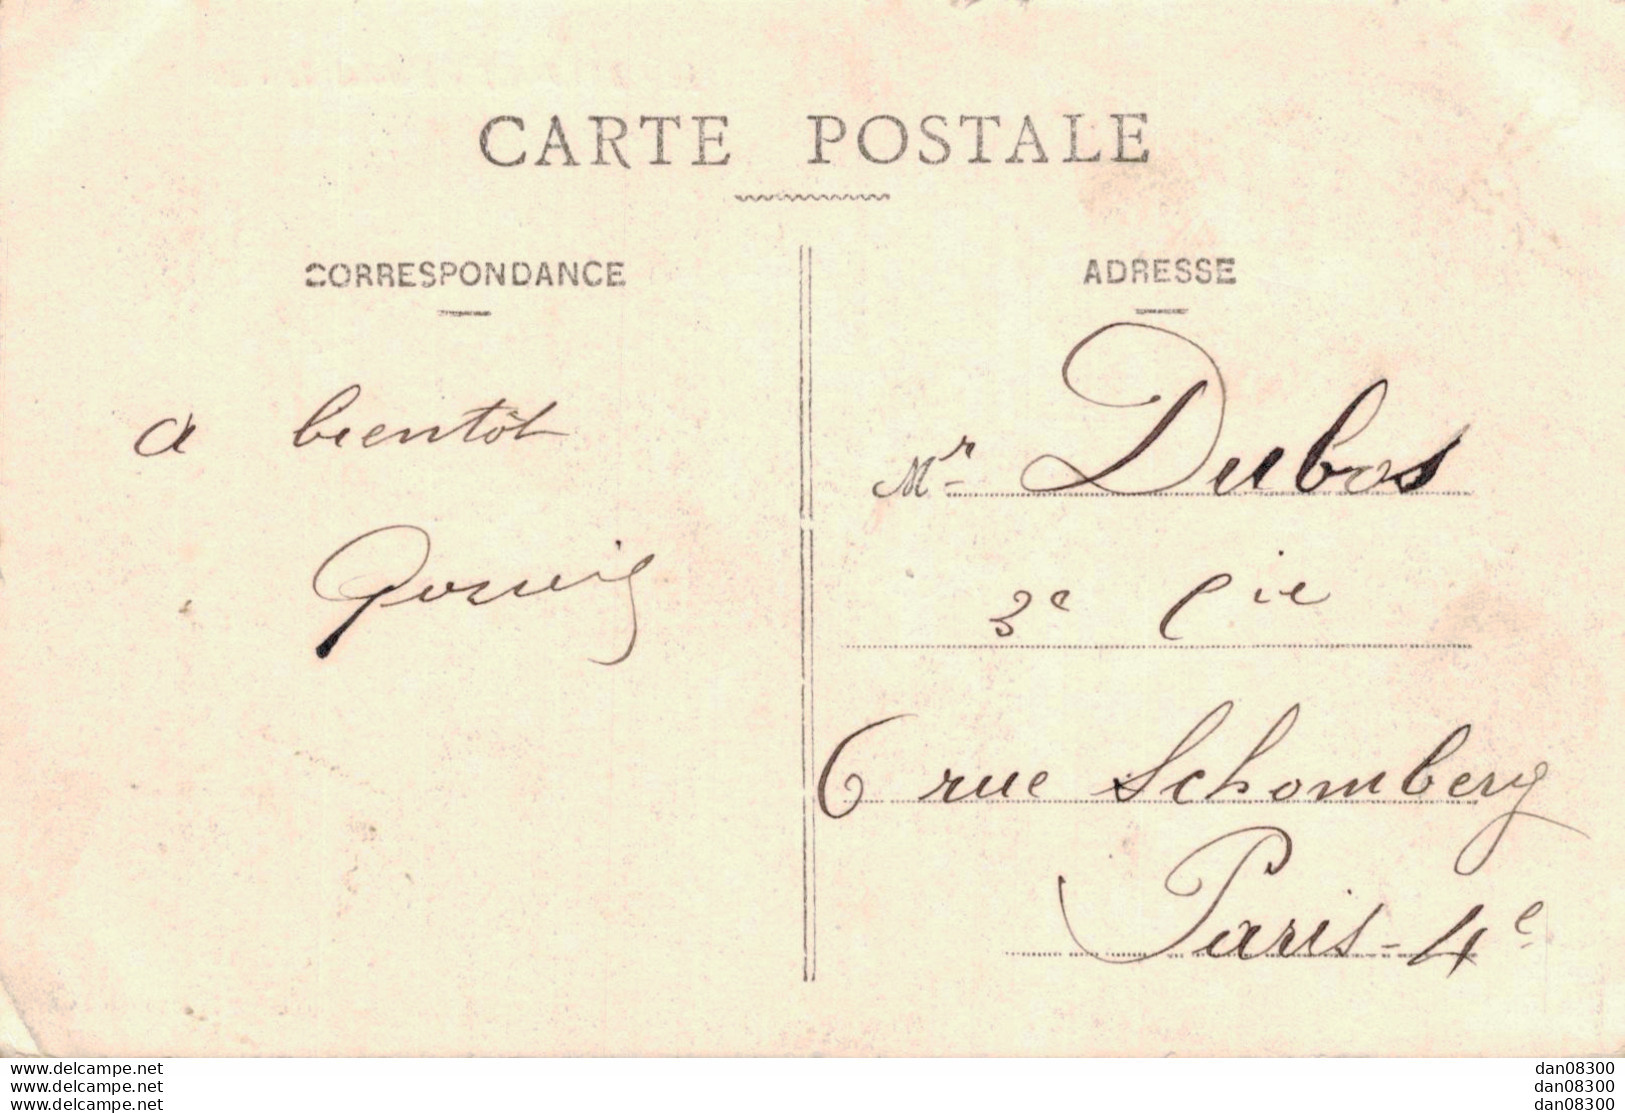 CARTE POSTALE
CORRESPONDANCE
a bientôt
ADRESSE
Mr Dubos
3e Cie
6 rue Schomberg
Paris - 4e
www.delcampe.net
www.delcampe.net
www.delcampe.net
dan08300
dan08300
dan08300